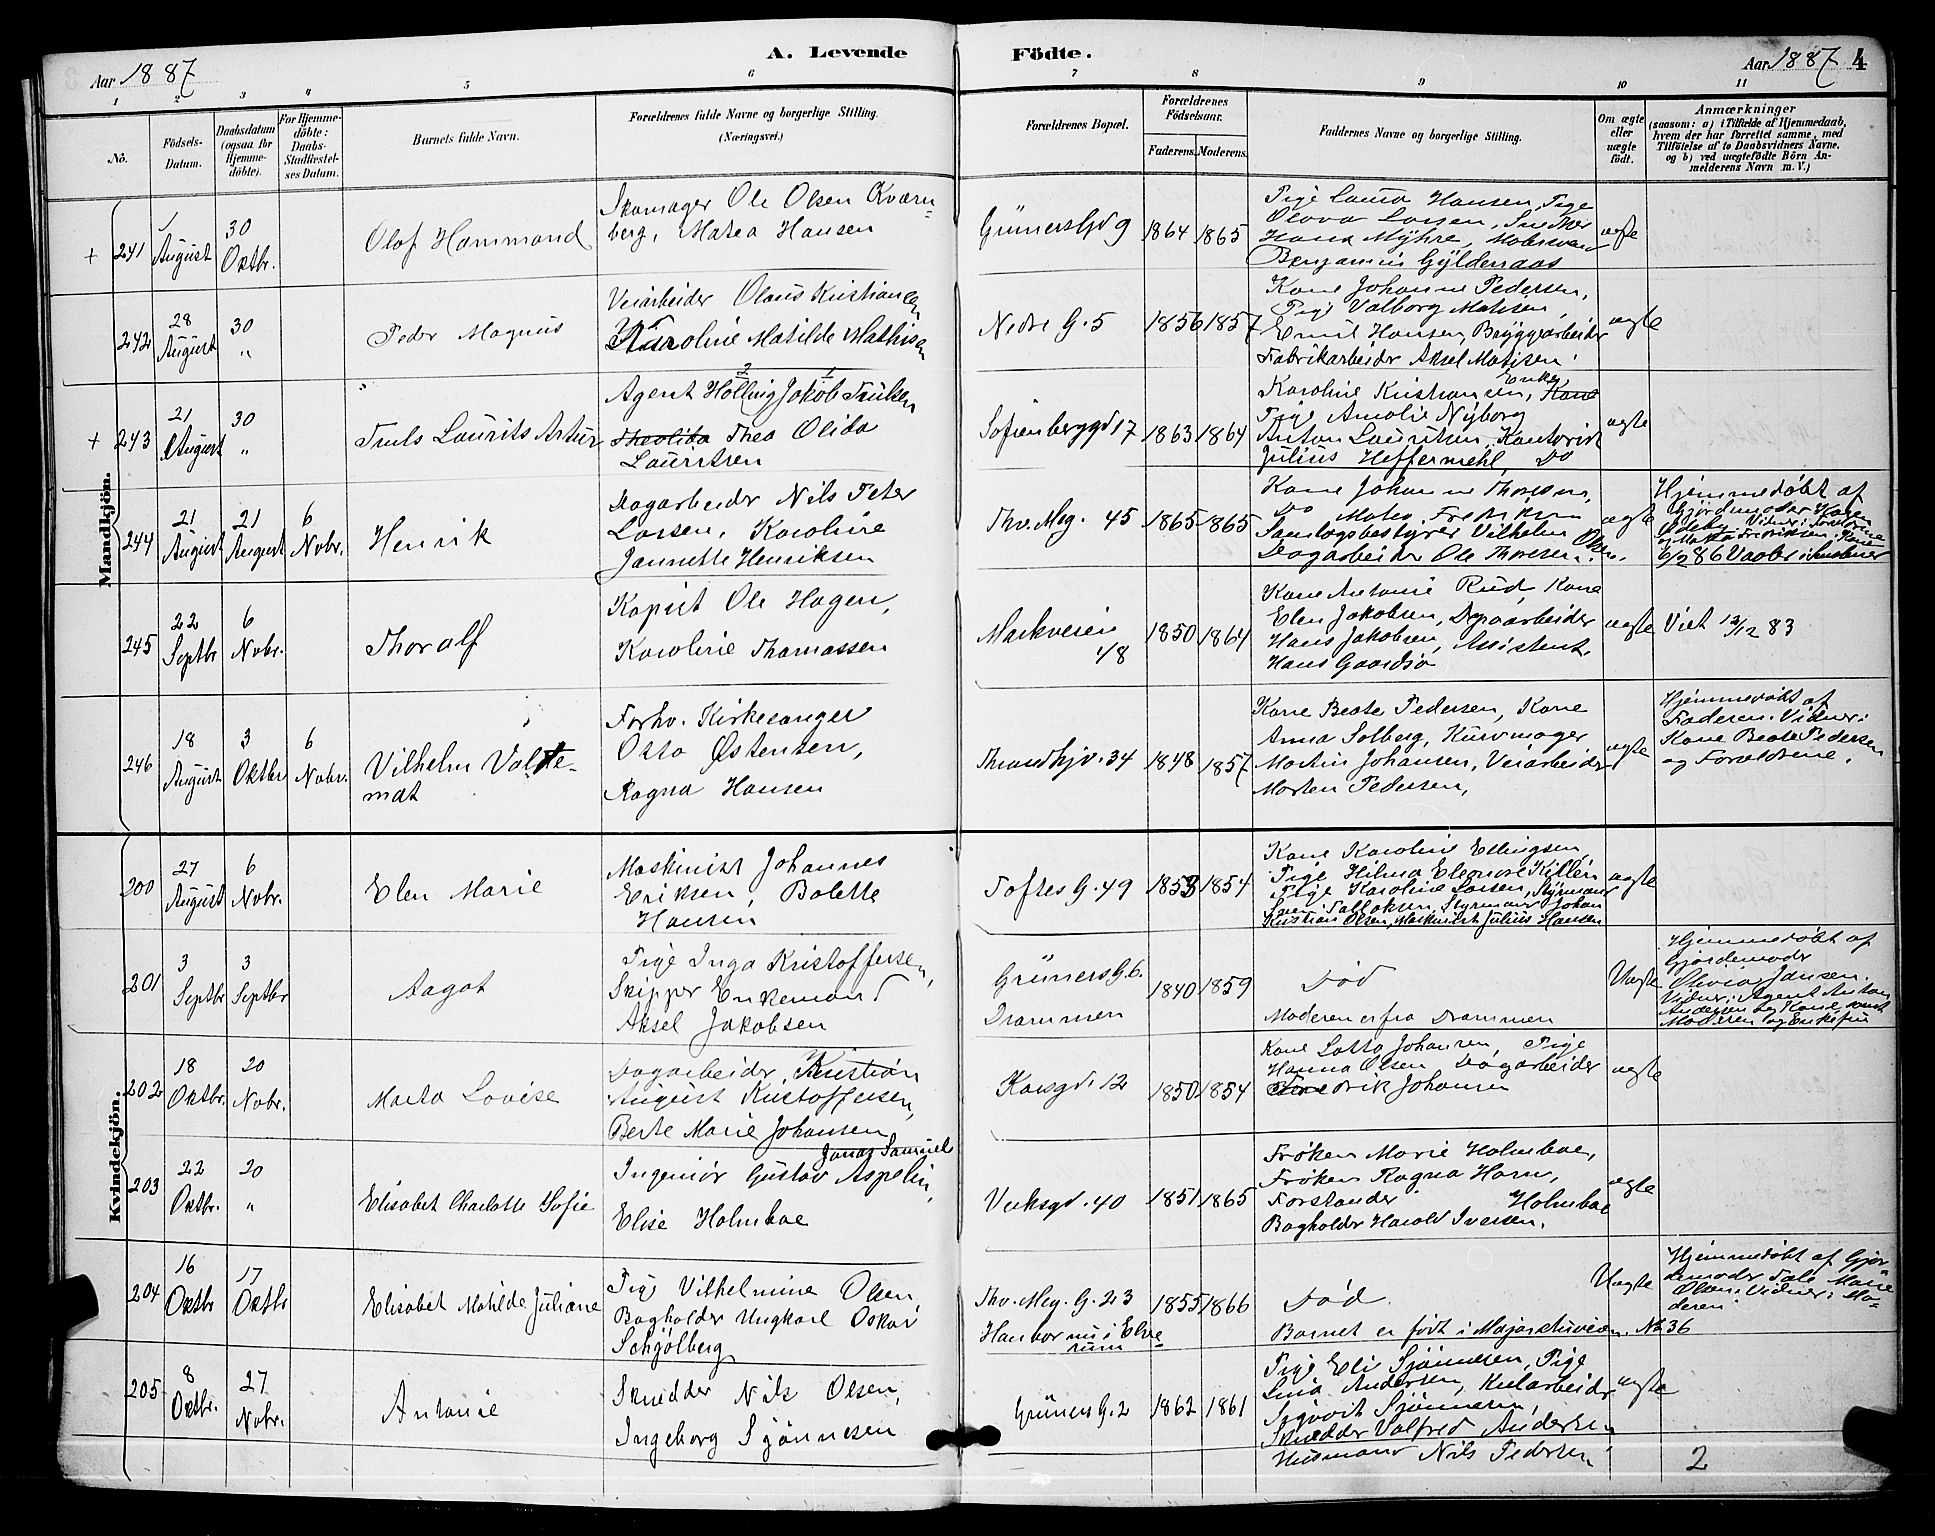 Aar 1887
A. Levende
Födte.
Aar 1887
4
1 2 3 4 5 6 7 8 9 10 11
No.
Födsels-
Datum.
Daabsdatum
(ogsaa for
Hjemme-
döbte).
For Hjemme-
döbte:
Daabs-
Stadfæstel-
ses Datum.
Barnets fulde Navn.
Forældrenes fulde Navne og borgerlige Stilling.
(Næringsvei.)
Forældrenes Bopæl.
Forældrenes
Födselsaar.
Faderens. Moderens.
Faddernes Navne og borgerlige Stilling.
Om ægte
eller
uægte
födt.
Anmærkninger
(saasom: a) i Tilfælde af Hjemmedaab,
hvem der har forrettet samme, med
Tilföielse af to Daabsvidners Navne,
og b) ved uægtefödte Börn An-
melderens Navn m. V.)
Mandkjön.
+ 241
1
August
30
Oktbr.
Olaf Hammond
Skomager Ole Olsen Kværn-
berg, Matea Hansen
Grünersgd 9
1864 1865
Pige Laura Hansen, Pige
Olava Larsen, Snedker
Hans Myhre,
Benjamin Gyldenaas
ægte
242
28
August
30
"
Peder Magnus
Veiarbeider Olaus Kristiansen
Karoline Matilde Mathisen
Nedre G. 5
1856 1857
Kone Johanne Pedersen,
Pige Valborg Matisen,
Emil Hansen, Bryggearbeider
Fabrikarbeider Aksel Matisen.
ægte
+ 243
21
August
30
"
Truls Laurits Artur
2 1
Agent Holling Jakob Trulsen
Theolida Thea Olida
Lauritsen
Sofienberggd 17
1863 1864
Enke,
Karoline Kristiansen, Kone
Pige Amalie Nyborg
Anton Lauritsen, Kontorist
Julius Heffermehl, Do
ægte
244
21
August
21
August
6
Nobr.
Henrik
Dagarbeider Nils Peter
Larsen, Karoline
Jannette Henriksen
Thv. Meg. 45
1865 1865
Kone Johanne Thoresen,
Do Mathea Fredriksen
Samlagsbestyrer Vilhelm Olsen,
Dagarbeider Ole Thoresen.
ægte
Hjemmedøbt af
Gjordmoder Karen
Ødeby. Vidner:
og Mathea Fredriksen. Kone
6/2 86
245
22
Septbr
6
Nobr.
Thoralf
Kopist Ole Hagen,
Karoline Thomassen
Markveien
48
1850 1864
Kone Antonie Rud, Kone
Elen Jakobsen, Dagarbeider
Hans Jakobsen, Assistent
Hans Gaardsø
ægte
Viet 12/12 83
246
18
August
3
Oktbr
6
Nobr.
Vilhelm Valde-
mar
Forhv. Kirkesanger
Otto Østensen,
Ragna Hansen
Throndhjv. 34
1848 1857
Kone Beate Pedersen, Kone
Anna Solberg, Kurvmager
Martin Johansen, Veiarbeider
Morten Pedersen,
ægte
Hjemmedøbt af
Faderen. Vidner:
Kone Beate Pedersen
og Forældrene.
Kvindekjön.
200
27
August
6
Nobr.
Elen Marie
Maskinist Johannes
Eriksen, Bolette
Hansen
Toftes G. 49
1853 1854
Kone Karoline Ellingsen,
Pige Hilma Eleonore Killén
Pige Karoline Larsen, Styrmand
Styrmand Johan
Kristian Olsen, Maskinist Julius Hansen
ægte
201
3
Septbr
3
Septbr
Aagot
Pige Inga Kristoffersen,
Skipper Enkemand
Aksel Jakobsen
Grüners G. 6.
Drammen
1840 1859
Død
Moderen er fra Drammen
Uægte
Hjemmedøbt af
Gjordemoder
Olivia Jansen.
Vidner: Agent Anton
Andersen og Kone samt
Moderen og Enkefru
202
18
Oktbr.
20
Nobr.
Marta Lovise
Dagarbeider Kristian
August Kristoffersen,
Berte Marie Johansen
Korsgd. 12
1850 1854
Kone Lotta Johansen, Pige
Hanna Olsen Dagarbeider
Fredrik Johansen
ægte
203
22
Oktbr.
20
"
Elisabet Charlotte Sofie
Jonas Samuel
Ingeniør Gustav Aspelin,
Elise Holmboe
Verksgd. 40
1851 1865
Frøken Marie Holmboe,
Frøken Ragna Horn,
Forstander Holmboe
Bogholder Harald Iversen.
ægte
204
16
Oktbr
17
Oktbr
Elisabet Matilde Juliane
Pige Vilhelmine Olsen,
Bogholder Ungkarl Oskar
Schjølberg
Thv. Meg. G. 23
Han bor nu i Elve-
rum
1855 1866
Død.
Barnet er født i Majorstuveien. No 36
Uægte
Hjemmedøbt af Gjor-
demoder Tale Marie
Olsen. Vidner: Mo-
deren
205
8
Oktbr.
27
Nobr.
Antonie
Snedker Nils Olsen,
Ingeborg Sjønnesen
Grüners G. 2
1862 1861
Pige Eli Sjønnesen, Pige
Lina Andersen, Kularbeider
Sigvart Sjønnesen,
Snedker Valfred Andersen
Husmand Nils Pedersen
ægte
2